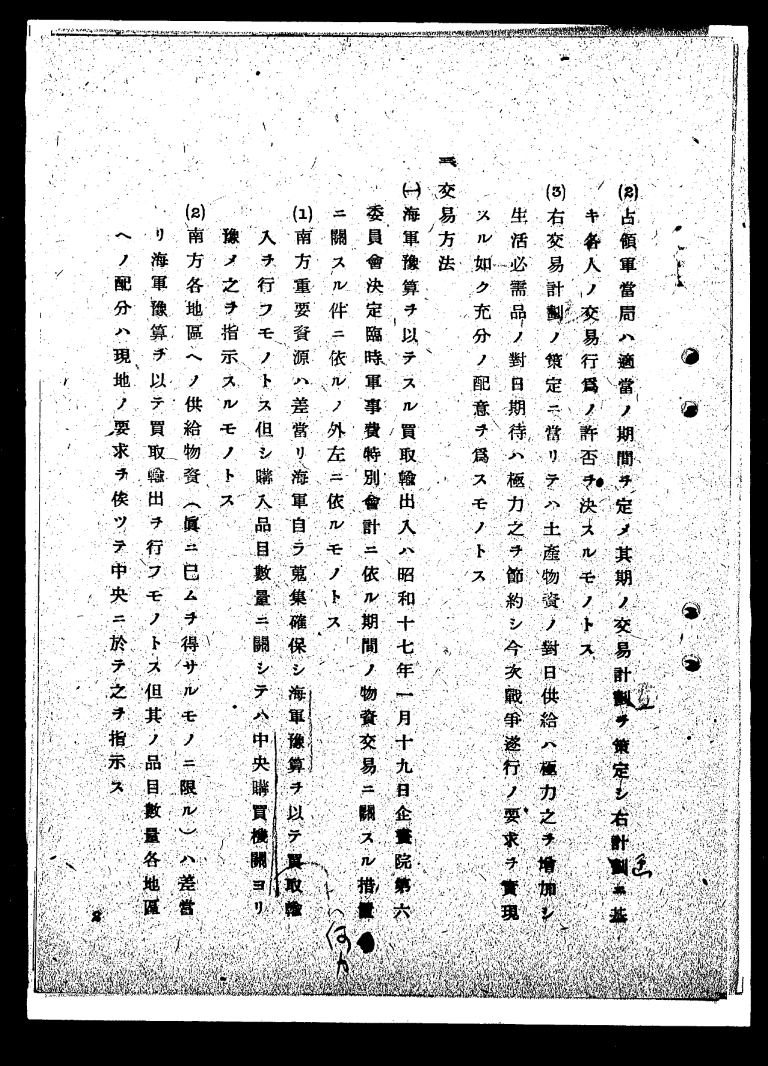 (2)占領軍當局ハ適當ノ期間ヲ定メ其期ノ交易計劃ヲ策定シ右計劃ニ基
キ各人ノ交易行爲ノ許否ヲ決スルモノトス
(3)右交易計劃ノ策定ニ當リテハ土產物資ノ對日供給ハ極力之ヲ增加シ
生活必需品ノ對日期待ハ極力之ヲ節約シ今次戰爭遂行ノ要求ヲ實現
スル如ク充分ノ配意ヲ爲スモノトス
交易方法
(一)海軍豫算ヲ以テスル買取輸出入ハ昭和十七年一月十九日企畫院第六
委員會決定臨時軍事費特別會計ニ依ル期間ノ物資交易ニ關スル措置
ニ關スル件ニ依ルノ外左ニ依ルモノトス
(1)南方重要資源ハ差當リ海軍自ラ蒐集確保シ海軍豫算ヲ以テ買取輸
入ヲ行フモノトス但シ購入品目數量ニ關シテハ中央購買機關ヨリ
豫メ之ヲ指示スルモノトス
(2)南方各地區ヘノ供給物資(眞ニ已ムヲ得サルモノニ限ル)ハ差當
リ海軍豫算ヲ以テ買取輸出ヲ行フモノトス但其ノ品目數量各地區
ヘノ配分ハ現地ノ要求ヲ俟ツテ中央ニ於テ之ヲ指示ス
トハ何カ
2